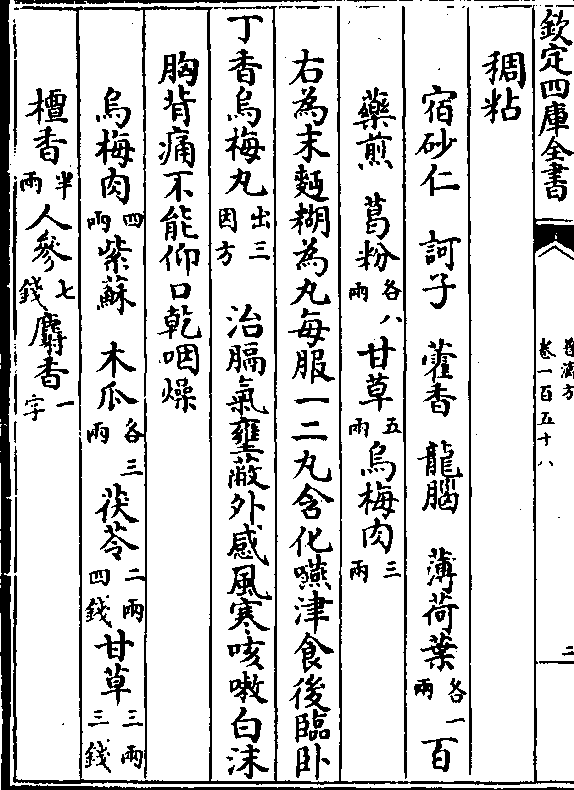 欽定四庫全書
普濟方
卷一百五十八
二
稠粘
宿砂仁 訶子 藿香 龍腦 薄荷葉各一兩 百
藥煎 葛粉各八兩 甘草五兩 烏梅肉三兩
右為末麪糊為丸每服一二丸含化嚥津食後臨卧
丁香烏梅丸出三因方 治膈氣壅蔽外感風寒咳嗽白沫
胸背痛不能仰口乾咽燥
烏梅肉四兩 紫蘇 木瓜各三兩 茯苓二兩四錢 甘草三兩三錢
檀香半兩 人參七錢 麝香一字